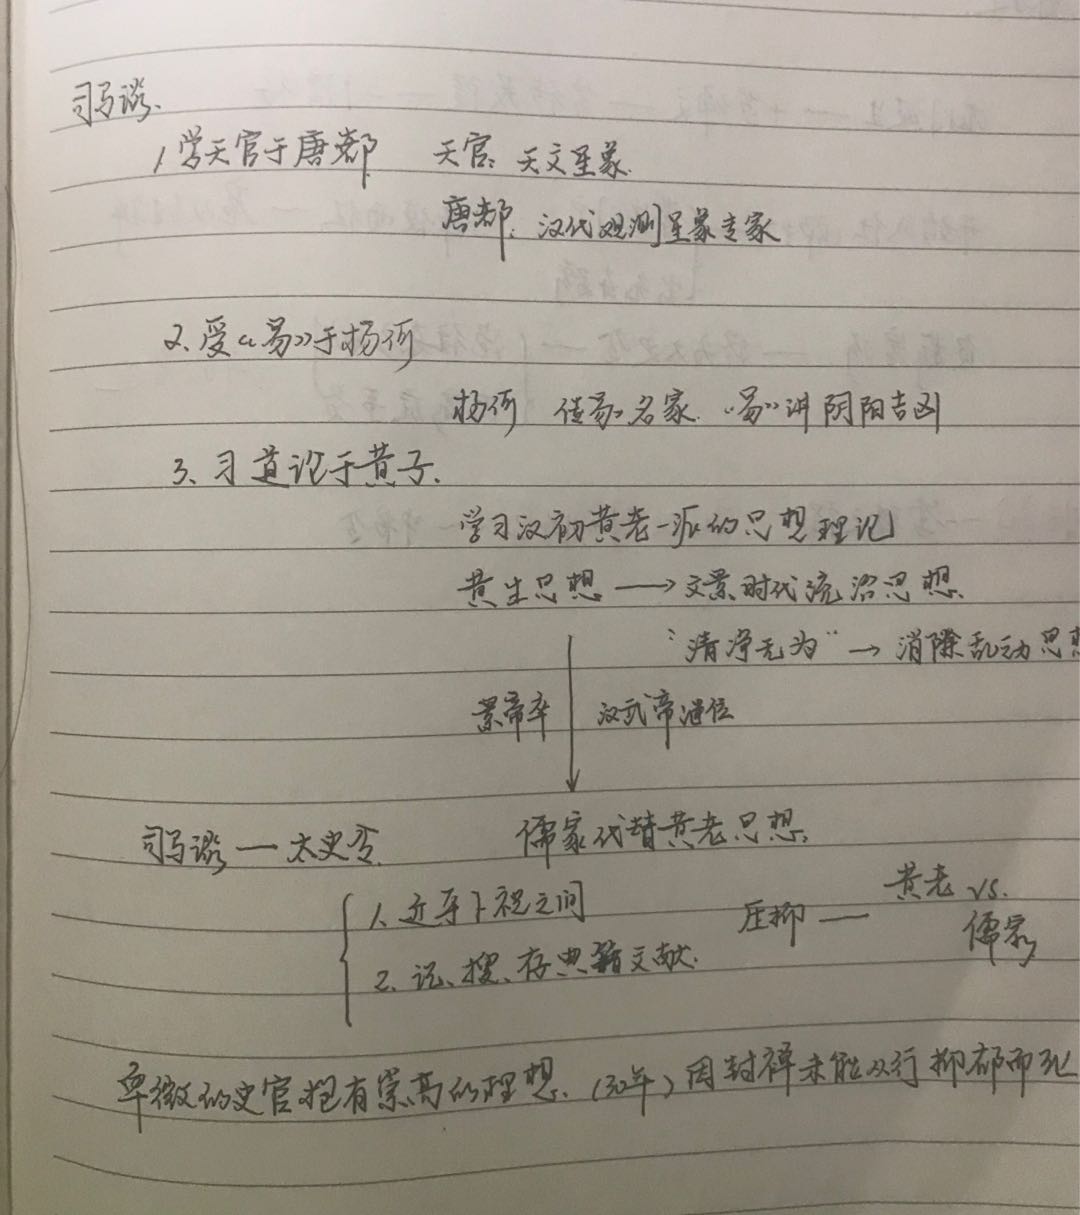 司马谈.
1. 学天官于唐都 天官: 天文星象.
唐都: 汉代观测星象专家
2. 受《易》于杨何
杨何 传《易》名家. 《易》讲阴阳吉凶
3. 习道论于黄子.
学习汉初黄老一派的思想理论
黄生思想 → 文景时代统治思想.
"清净无为" → 消除乱动思想
景帝卒 汉武帝继位
司马谈 — 太史令. 儒家代替黄老思想.
1. 近乎卜祝之间 压抑 — 黄老 vs.
儒家
2. 记、搜、存典籍文献.
卑微的史官抱有崇高的理想. (30年) 因封禅未能从行 抑郁而死